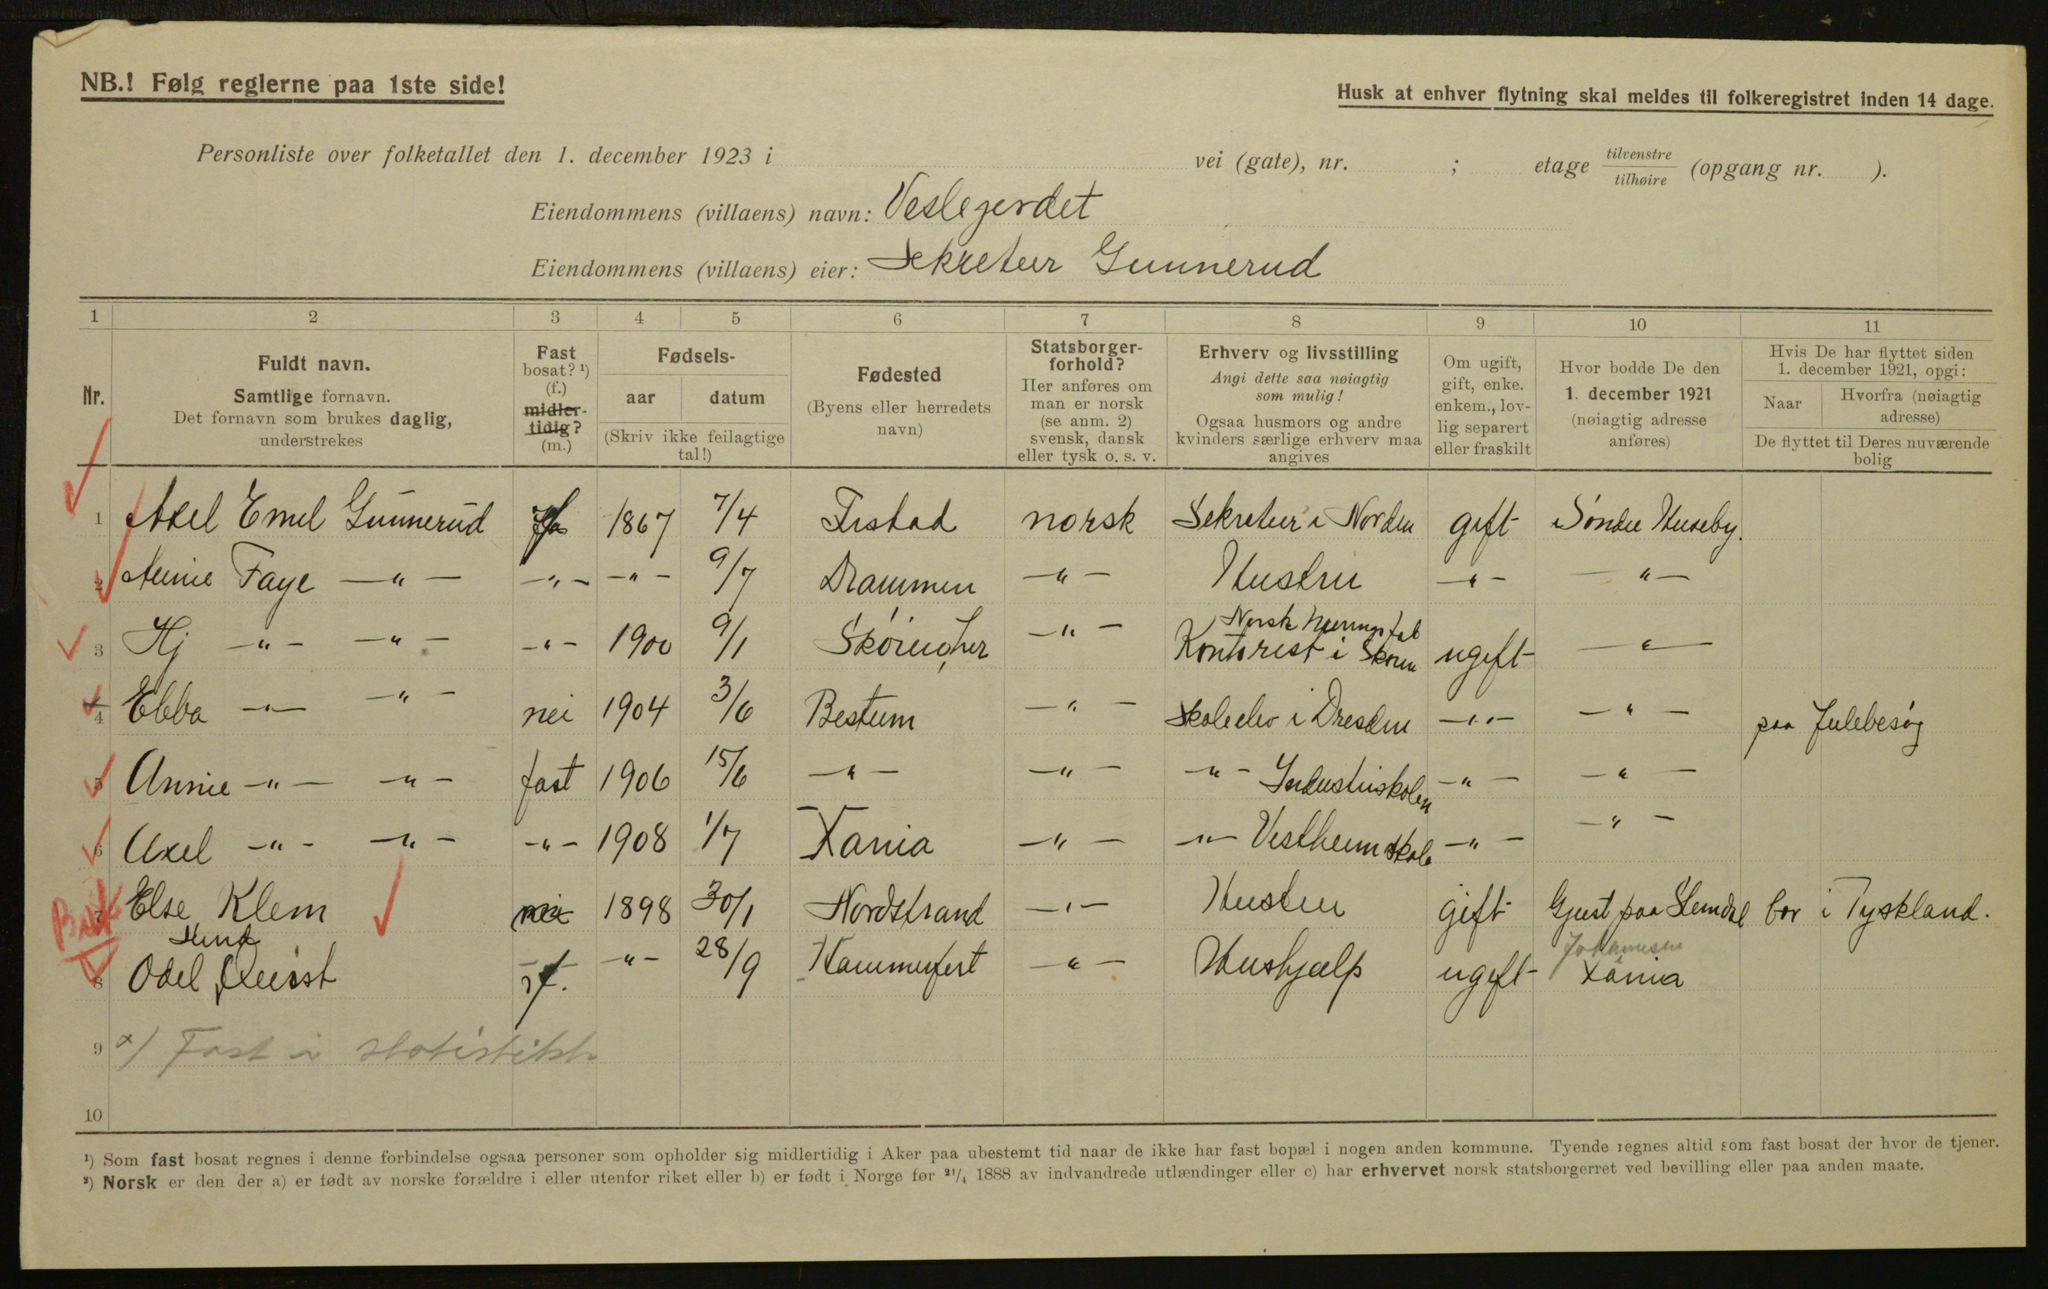 NB.! Følg reglerne paa 1ste side!
Husk at enhver flytning skal meldes til folkeregistret inden 14 dage.
Personliste over folketallet den 1. december 1923 i vei (gate), nr. ; etage tilvenstre tilhøire (opgang nr. ).
Eiendommens (villaens) navn: Veslegerdet
Eiendommens (villaens) eier: Sekretær Gunnerud
1 2 3 4 5 6 7 8 9 10 11
Nr.
Fuldt navn.
Samtlige fornavn.
Det fornavn som brukes daglig, understrekes
Fast bosat? ¹) (f.) midlertidig? (m.)
Fødsels-
aar datum
(Skriv ikke feilagtige tal!)
Fødested
(Byens eller herredets navn)
Statsborgerforhold?
Her anføres om man er norsk (se anm. 2) svensk, dansk eller tysk o. s. v.
Erhverv og livsstilling
Angi dette saa nøiagtig som mulig!
Ogsaa husmors og andre kvinders særlige erhverv maa angives
Om ugift, gift, enke. enkem., lovlig separert eller fraskilt
Hvor bodde De den 1. december 1921 (nøiagtig adresse anføres)
Hvis De har flyttet siden 1. december 1921, opgi:
Naar Hvorfra (nøiagtig adresse)
De flyttet til Deres nuværende bolig
1 Axel Emil Gunnerud 1867 7/4 norsk Sekretær i Norden gift Søndre Huseby.
2 Faye — " — — " — — " — 9/7 Drammen — " — Hustru — " — — " —
3 Hj — " — — " — — " — 1900 9/1 — " — Kontorist i ugift — " —
4 Ebba — " — — " — nei 1904 3/6 Bestum — " — Skoleelev i Dresden — " — — " — paa Julebesøg
5 Annie — " — — " — fast 1906 15/6 — " — — " — — " — Industriskolen — " — — " —
6 Axel — " — — " — — " — 1908 1/7 Xania — " — — " — Vestheim skole — " — — " —
7 Else Klem nei 1898 30/1 Nordstrand — " — Hustru gift Gjest paa Slemdal bor i Tyskland.
8 Odel f. — " — 28/9 Hammerfest — " — Hushjælp ugift Johannesen Xania
9 x) Fast i statistikk
10
¹) Som fast bosat regnes i denne forbindelse ogsaa personer som opholder sig midlertidig i Aker paa ubestemt tid naar de ikke har fast bopæl i nogen anden kommune. Tyende regnes altid som fast bosat der hvor de tjener.
²) Norsk er den der a) er født av norske forældre i eller utenfor riket eller b) er født i Norge før 21/4 1888 av indvandrede utlændinger eller c) har erhvervet norsk statsborgerret ved bevilling eller paa anden maate.